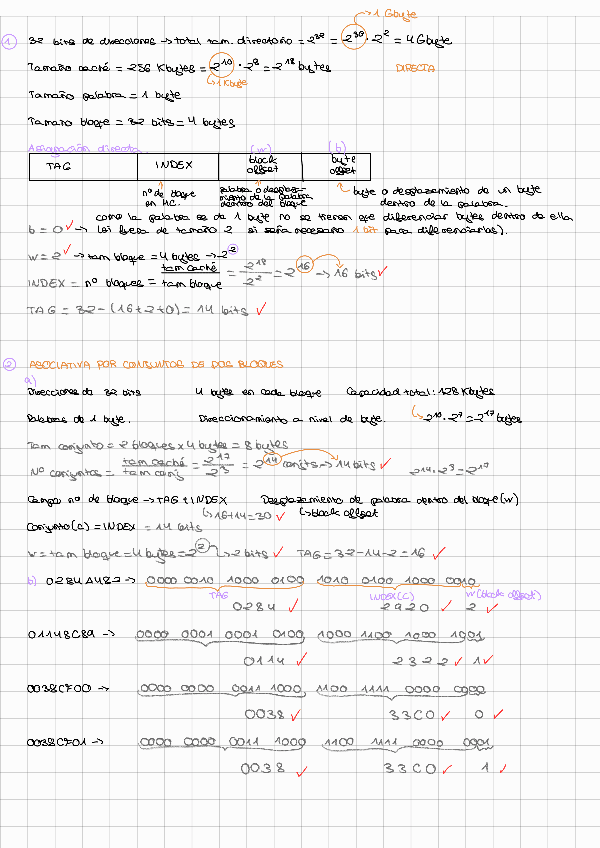 → 1 Gbyte
1 32 bits de direcciones → total tam. directorio = 2³² = 2³⁰ · 2² = 4 Gbyte
Tamaño caché = 256 Kbytes = 2¹⁰ · 2⁸ = 2¹⁸ bytes DIRECTA
→ 1 Kbyte
Tamaño palabra = 1 byte
Tamaño bloque = 32 bits = 4 bytes
Asignación directa (w) (b)
TAG INDEX block offset byte offset
nº de bloque en M.C. palabra o desplazamiento de la palabra dentro del bloque byte o desplazamiento de un byte dentro de la palabra.
como la palabra es de 1 byte no se tienen que diferenciar bytes dentro de ella
b = 0 ✓ → (si fuera de tamaño 2 si sería necesario 1 bit para diferenciarlos).
w = 2 ✓ → tam bloque = 4 bytes → 2²
INDEX = nº bloques = tam caché / tam bloque = 2¹⁸ / 2² = 2¹⁶ → 16 bits ✓
TAG = 32 - (16+2+0) = 14 bits ✓
2 ASOCIATIVA POR CONJUNTOS DE DOS BLOQUES
a)
Direcciones de 32 bits 4 bytes en cada bloque Capacidad total: 128 Kbytes
Palabras de 1 byte. Direccionamiento a nivel de byte. → 2¹⁰ · 2⁷ = 2¹⁷ bytes
Tam conjunto = 2 bloques x 4 bytes = 8 bytes
Nº conjuntos = tam caché / tam conj = 2¹⁷ / 2³ = 2¹⁴ conjts → 14 bits ✓ 2¹⁴ · 2³ = 2¹⁷
Campo nº de bloque → TAG + INDEX Desplazamiento de palabra dentro del bloque (w)
→ 16+14 = 30 ✓ → block offset
Conjunto (c) = INDEX = 14 bits
w = tam bloque = 4 bytes = 2² → 2 bits ✓ TAG = 32 - 14 - 2 = 16 ✓
b) 0284A482 → 0000 0010 1000 0100 1010 0100 1000 0010
TAG INDEX (c) w (block offset)
0284 ✓ 2920 ✓ 2 ✓
01148C89 → 0000 0001 0001 0100 1000 1100 1000 1001
0114 ✓ 2322 ✓ 1 ✓
0038CF00 → 0000 0000 0011 1000 1100 1111 0000 0000
0038 ✓ 33C0 ✓ 0 ✓
0038CF01 → 0000 0000 0011 1000 1100 1111 0000 0001
0038 ✓ 33C0 ✓ 1 ✓